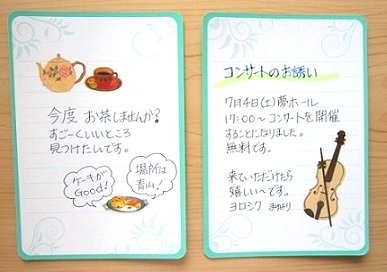 今度 お茶しませんか?
すごーくいいところ
見つけたんです。
ケーキが
Good!
場所は
青山!
コンサートのお誘い
7月4日(土)夢ホール
17:00〜 コンサートを開催
することになりました。
無料です。
来ていただけたら
嬉しい〜です。
ヨロシク